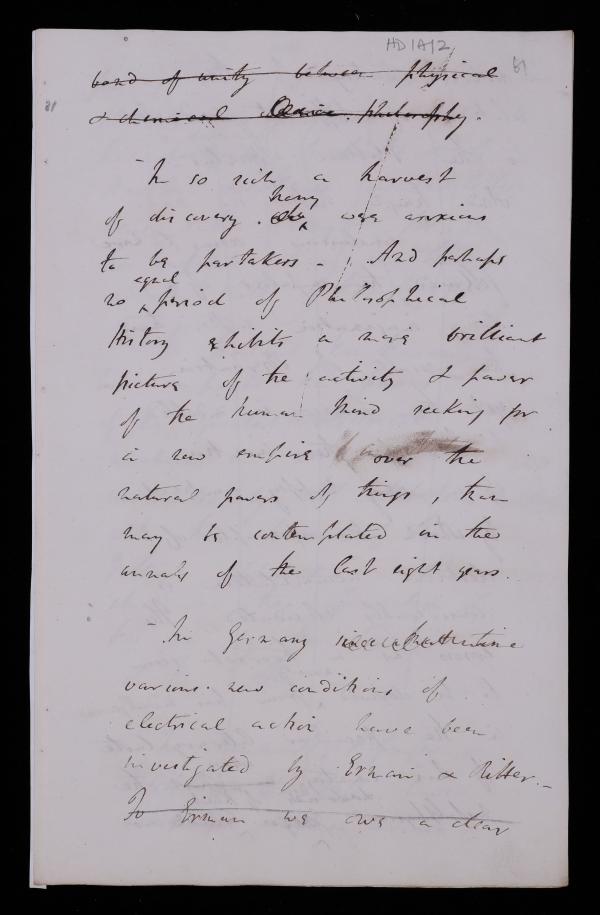 HD/A/2
81
bond of unity between physical
& chemical philosophy.
In so rich a harvest
many
of discovery were anxious
to be partakers - And perhaps
equal
no period of Philosophical
History exhibits a more brilliant
picture of the activity & power
of the human Mind seeking for
a new empire over the
natural powers of things, than
may be contemplated in the
annals of the last eight years.
In Germany
various new conditions of
electrical action have been
investigated by Erman & Ritter. -
To Erman we owe a clear